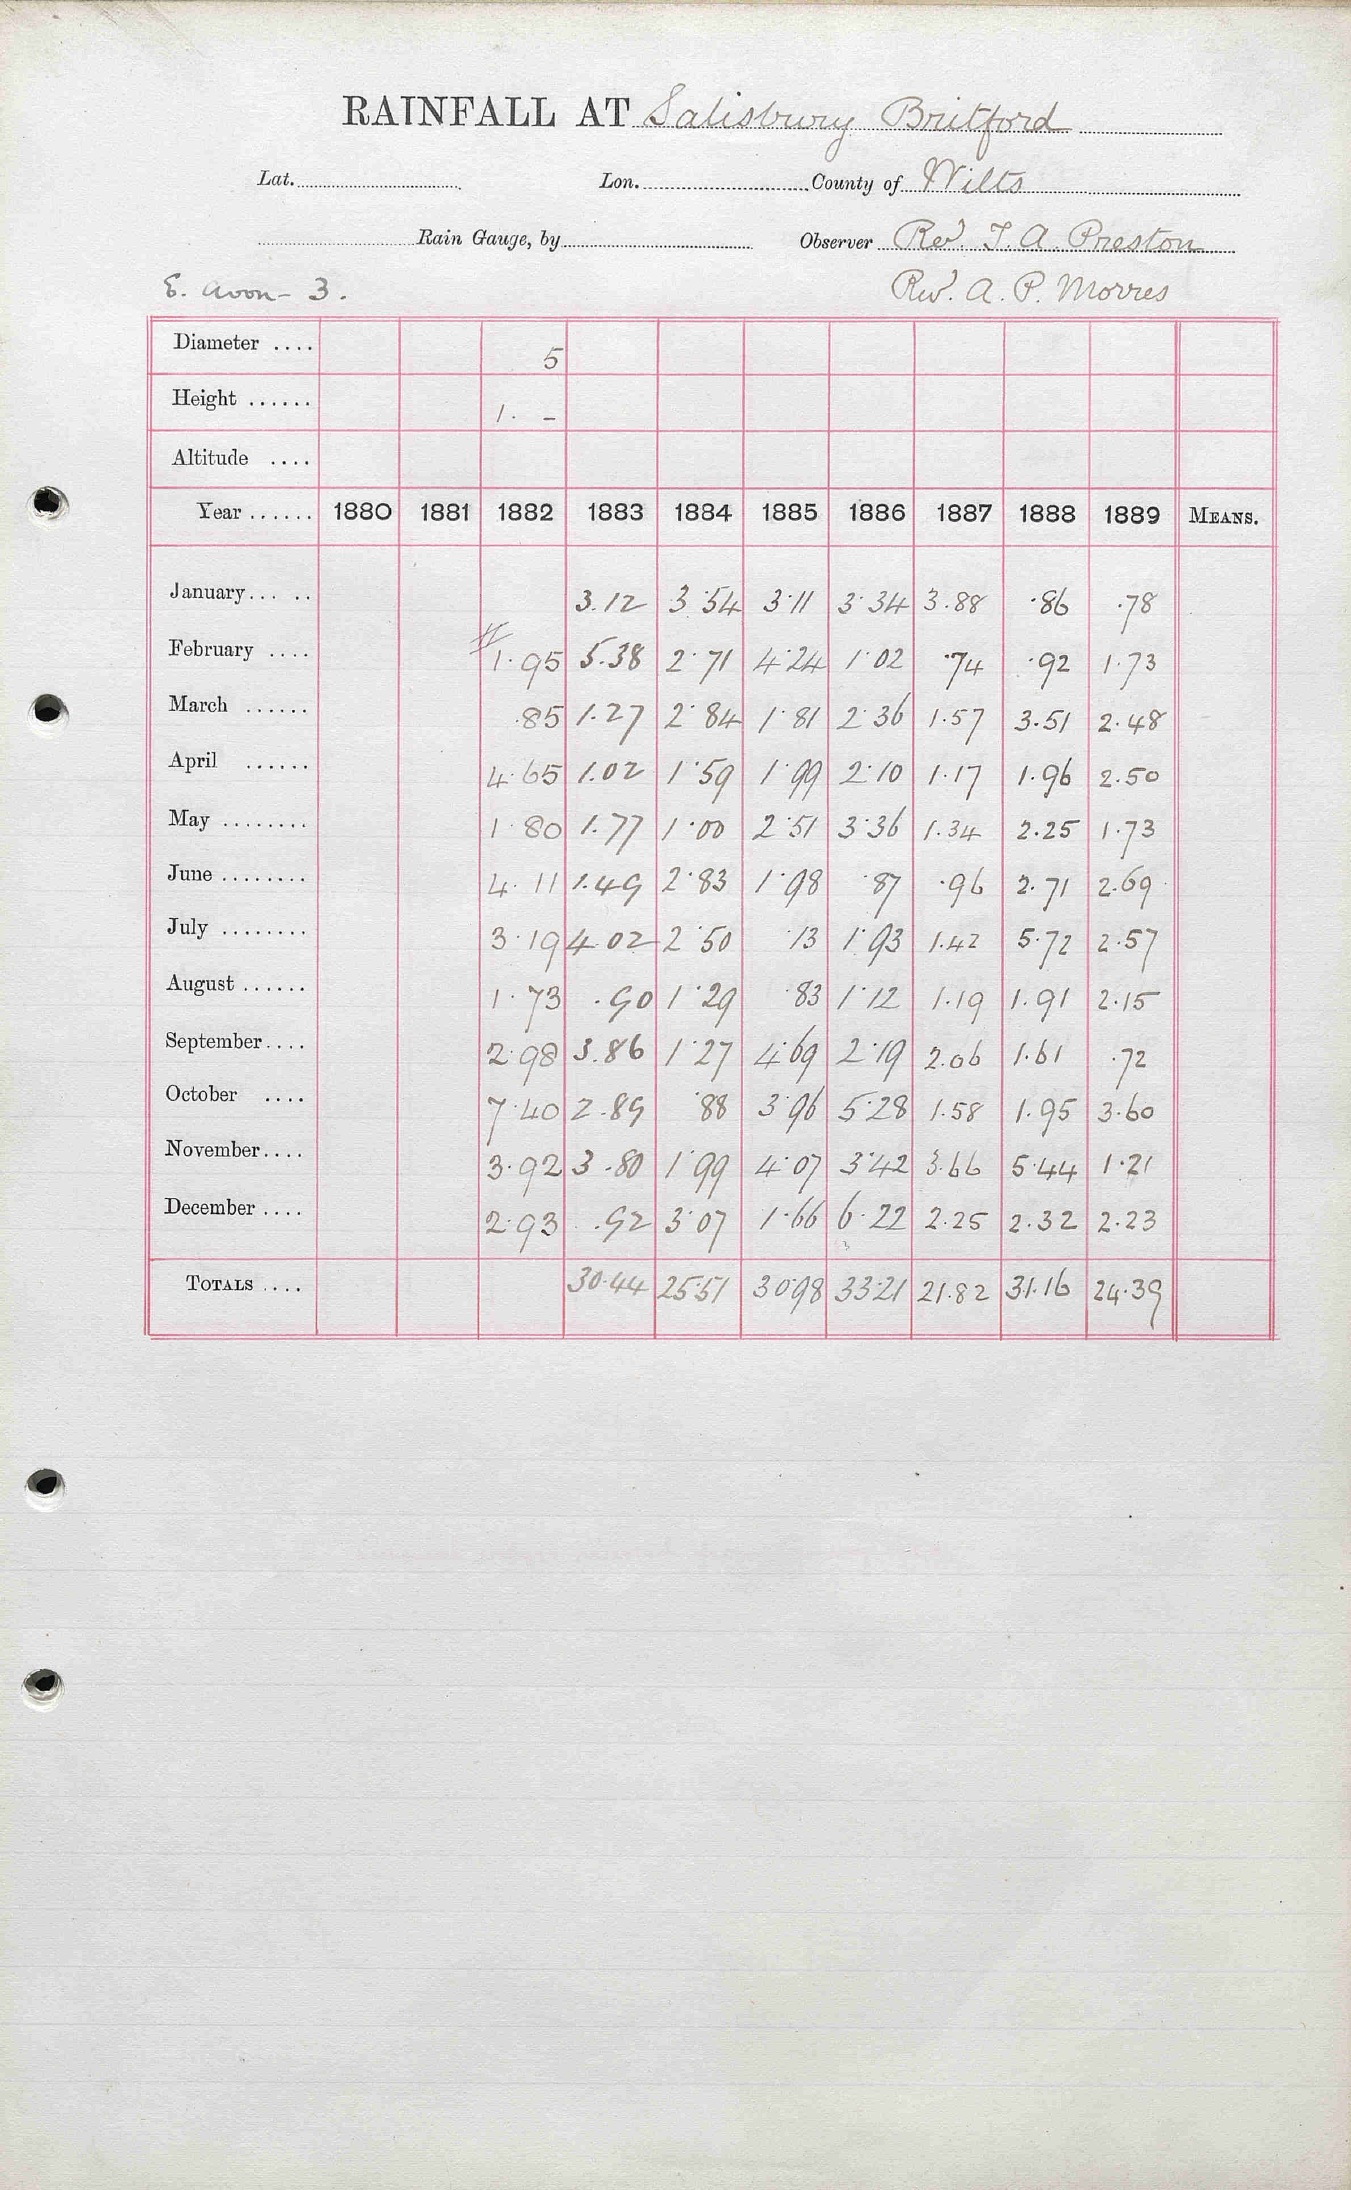 RAINFALL AT Salisbury Britford
Lat. Lon. County of Wilts
Rain Gauge, by Observer Rev. T. A Preston
E. Avon - 3. Rev. A. P. Morres
Diameter .... 5
Height ...... 1. -
Altitude ....
Year ...... 1880 1881 1882 1883 1884 1885 1886 1887 1888 1889 MEANS.
January... .. 3.12 3.54 3.11 3.34 3.88 .86 .78
February .... 1.95 5.38 2.71 4.24 1.02 .74 .92 1.73
March ...... .85 1.27 2.84 1.81 2.36 1.57 3.51 2.48
April ...... 4.65 1.02 1.59 1.99 2.10 1.17 1.96 2.50
May ........ 1.80 1.77 1.00 2.51 3.36 1.34 2.25 1.73
June ........ 4.11 1.49 2.83 1.98 .87 .96 2.71 2.69
July ........ 3.19 4.02 2.50 .13 1.93 1.42 5.72 2.57
August ...... 1.73 .90 1.29 .83 1.12 1.19 1.91 2.15
September.... 2.98 3.86 1.27 4.69 2.19 2.06 1.61 .72
October .... 7.40 2.89 .88 3.96 5.28 1.58 1.95 3.60
November.... 3.92 3.80 1.99 4.07 3.42 3.66 5.44 1.21
December .... 2.93 .92 3.07 1.66 6.22 2.25 2.32 2.23
TOTALS .... 30.44 25.51 30.98 33.21 21.82 31.16 24.39